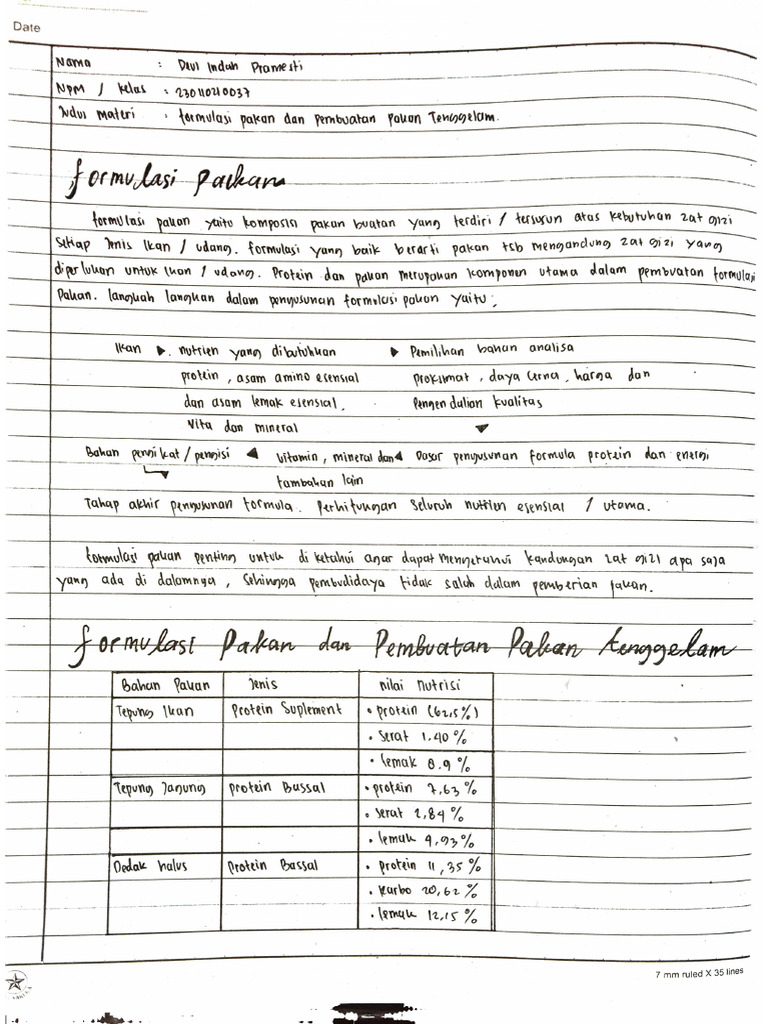 Date
Nama : Dewi Indah Pramesti
NPM / Kelas : 230110210037
Judul Materi : formulasi pakan dan pembuatan pakan Tenggelam.
formulasi Pakan
formulasi pakan yaitu komposisi pakan buatan yang terdiri / tersusun atas kebutuhan zat gizi
Setiap Jenis Ikan / udang. formulasi yang baik berarti pakan tsb mengandung zat gizi yang
diperlukan untuk Ikan / udang. Protein dan pakan merupakan komponen utama dalam pembuatan formulasi
Pakan. langkah langkah dalam penyusunan formulasi pakan yaitu :
Ikan ▶ nutrien yang dibutuhkan ▶ Pemilihan bahan analisa
protein, asam amino esensial proksimat, daya cerna, harga dan
dan asam lemak esensial. Pengendalian kualitas
Vita dan mineral ▼
Bahan pengikat/pengisi ◀ Vitamin, mineral dan ◀ Dasar penyusunan formula protein dan energi
tambahan lain
Tahap akhir penyusunan formula. Perhitungan Seluruh nutrien esensial / utama.
formulasi pakan penting untuk di ketahui agar dapat mengetahui kandungan zat gizi apa saja
yang ada di dalamnya, Sehingga pembudidaya tidak salah dalam pemberian pakan.
formulasi Pakan dan Pembuatan Pakan tenggelam
Bahan Pakan Jenis nilai nutrisi
Tepung Ikan Protein Suplement • protein (62,5%)
• Serat 1.40%
• lemak 8.9%
Tepung Jagung protein Bassal • protein 7,63%
• Serat 2,84%
• lemak 4,93%
Dedak halus Protein Bassal • protein 11,35%
• karbo 20,62%
• lemak 12,15%
7 mm ruled X 35 lines